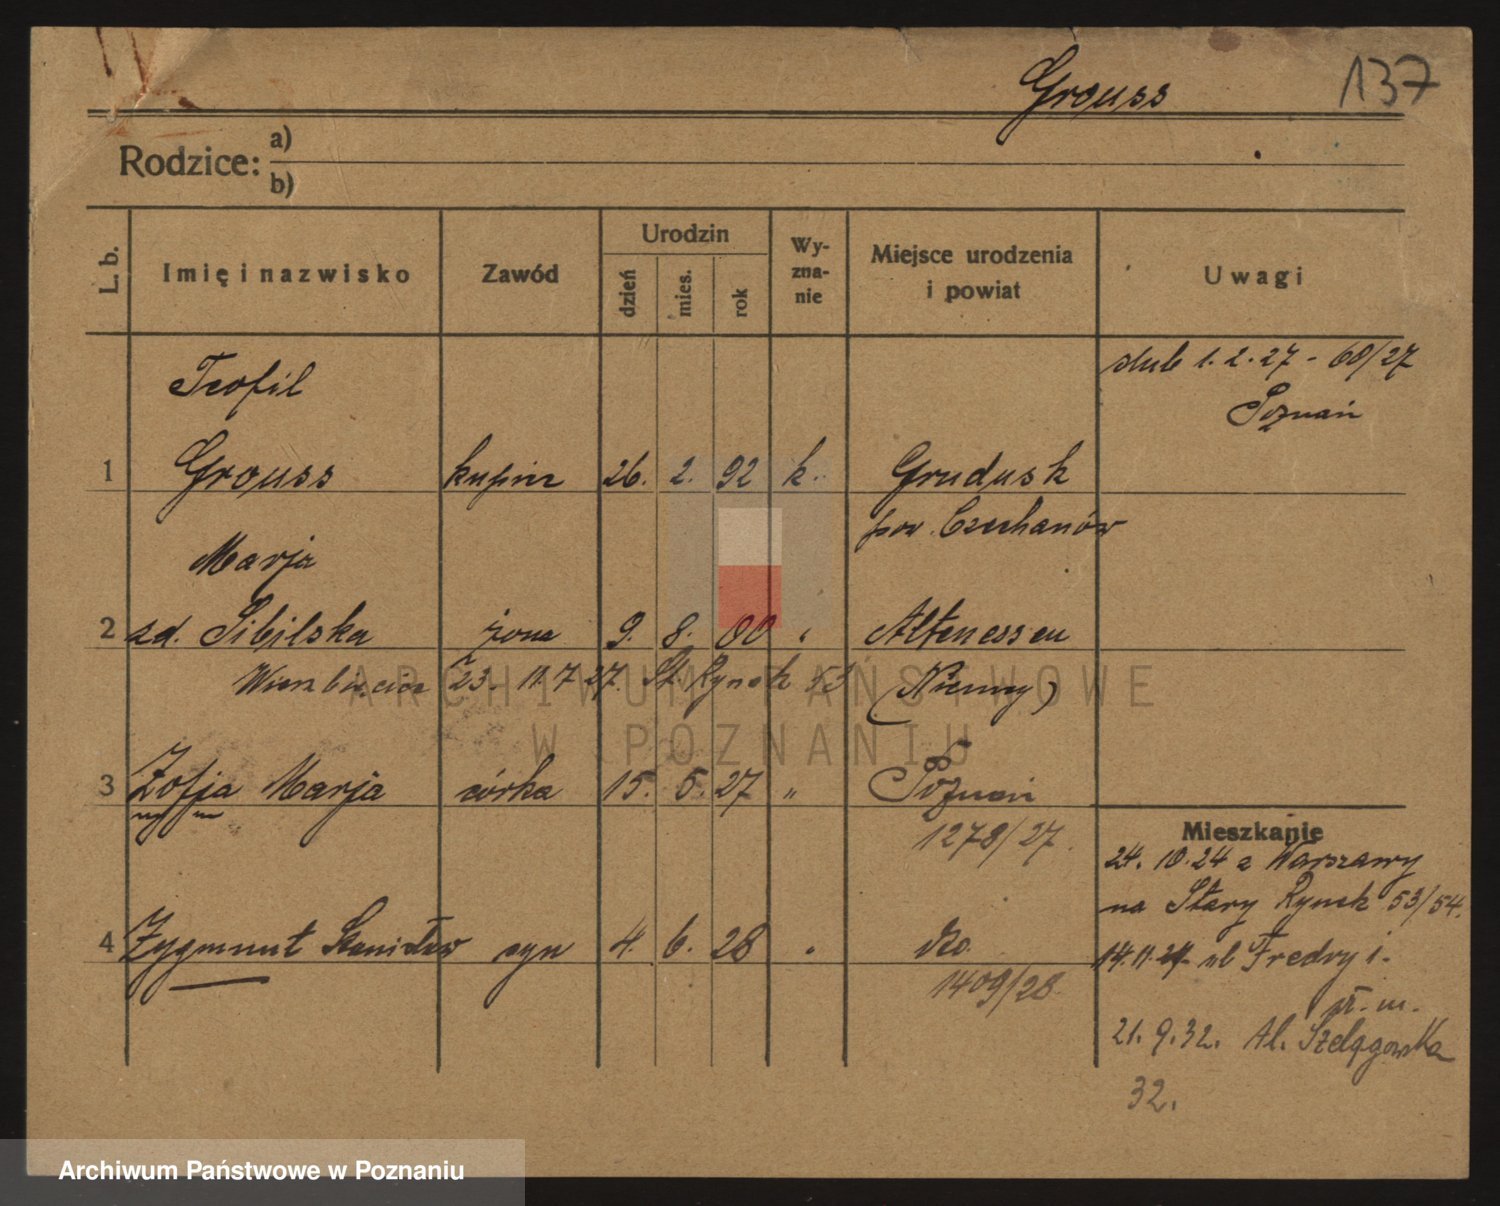 Grouss 137
Rodzice: a)
b)
L. b. Imię i nazwisko Zawód Urodzin dzień mies. rok Wy-zna-nie Miejsce urodzenia i powiat Uwagi
ślub 1. 2. 27 - 68/27
Teofil
Poznań
1 Grouss kupiec 26. 2. 92 k. Grudusk
pow. Czechanów
Marja
2 zd. Sibilska żona 9. 8. 00 " Altenessen
23. 11. 7 27. St. Rynek 53 (Niemcy)
ARCHIWUM PAŃSTWOWE
W POZNANIU
3 Zofja Marja córka 15. 5. 27 " Poznań
1278/27.
Mieszkanie
24. 10. 24 z Warszawy
na Stary Rynek 53/54.
4 Zygmunt Stanisław syn 4. 6. 28 "
14. 11. 27 ul Fredry 1.
1409/28.
21. 9. 32. Al. Szelągowska
32.
Archiwum Państwowe w Poznaniu